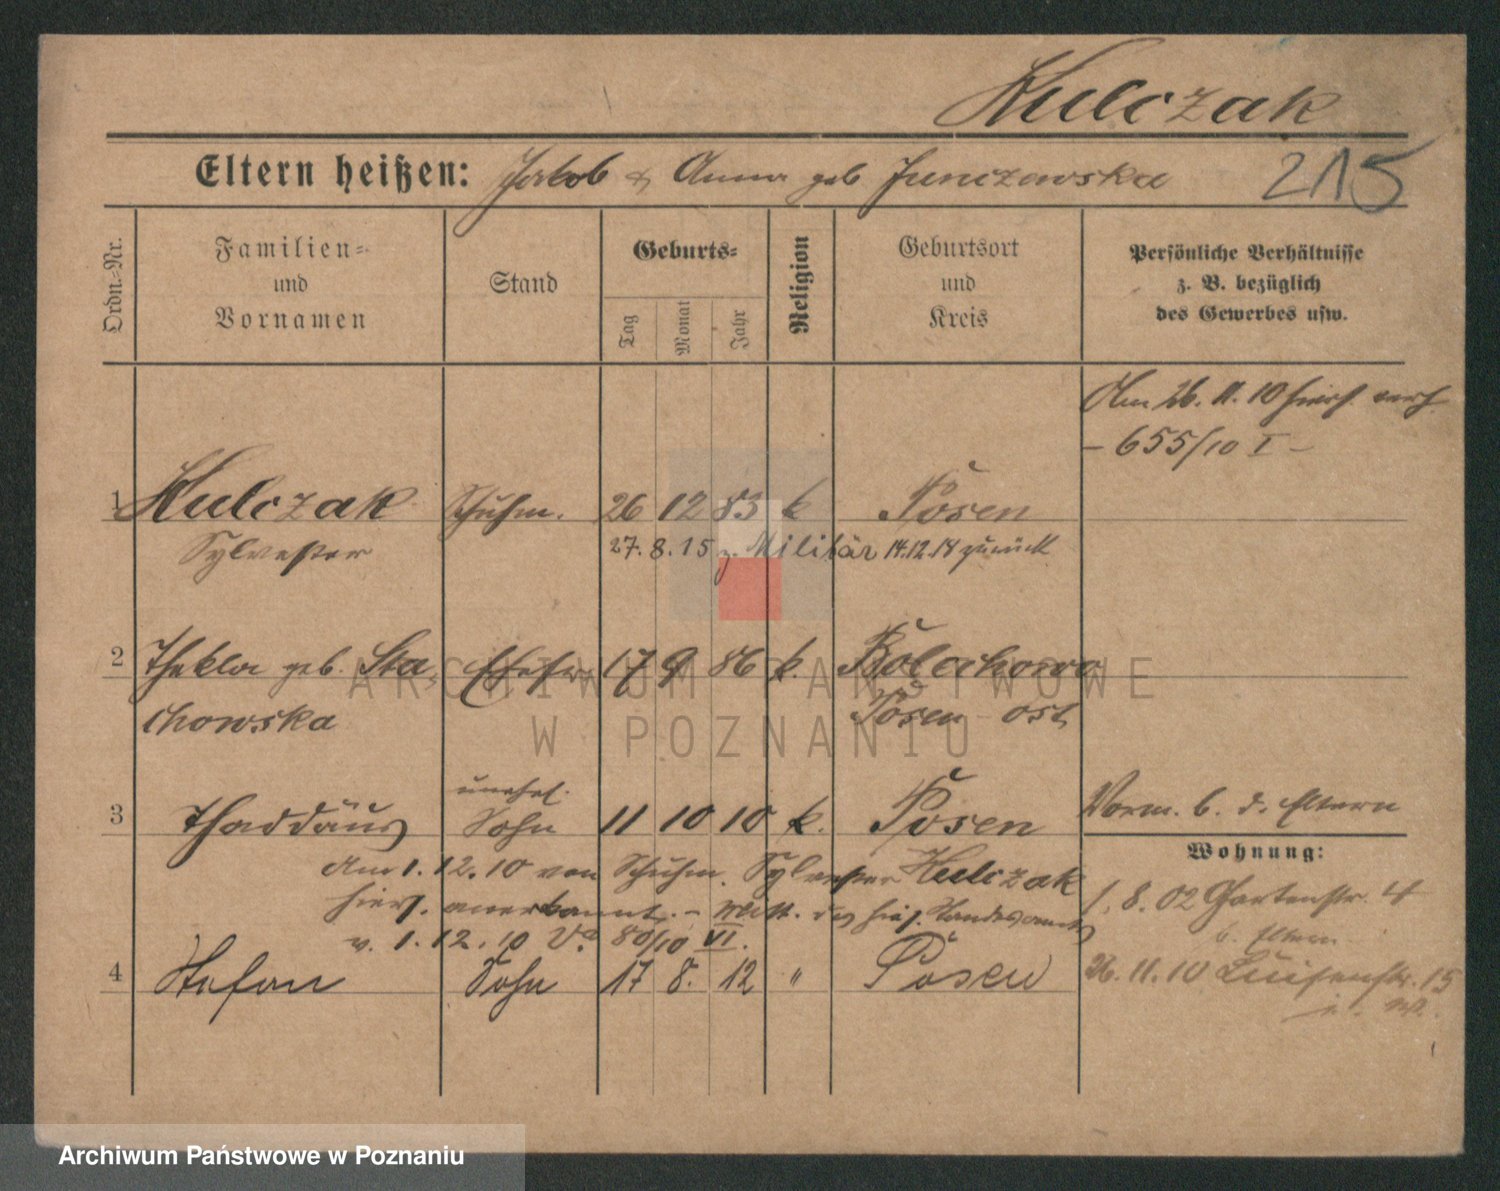 Kulczak
Eltern heißen: Jakob & Anna geb Junczewska
215
Ordn.-Nr.
Familien-
und
Vornamen
Stand
Geburts-
Tag
Monat
Jahr
Religion
Geburtsort
und
Kreis
Persönliche Verhältnisse
z. B. bezüglich
des Gewerbes usw.
Am 26. 11. 10 hiers. verh.
- 655/10 I -
1 Kulczak Schuhm. 26 12 83 k Posen
Sylvester 27. 8. 15 z. Militär 14.12.18 zurück
2 Thekla geb. Sta- Ehefr. 17 9 86 k. Bolechowo
chowska Posen-ost
unehel.
3 Thaddäus Sohn 11 10 10 k. Posen
Vorm. b. d. Eltern
Am 1. 12. 10 von Schuhm. Sylvester Kulczak
hiers. anerkannt. - Mitt. des hies. Standesamts
v. 1. 12. 10 80/10 VI.
4 Stefan Sohn 17 8. 12 " Posen
Wohnung:
1. 8. 02 Gartenstr. 4
b. Eltern
26. 11. 10 Luisenstr. 15
ARCHIWUM PAŃSTWOWE
W POZNANIU
Archiwum Państwowe w Poznaniu